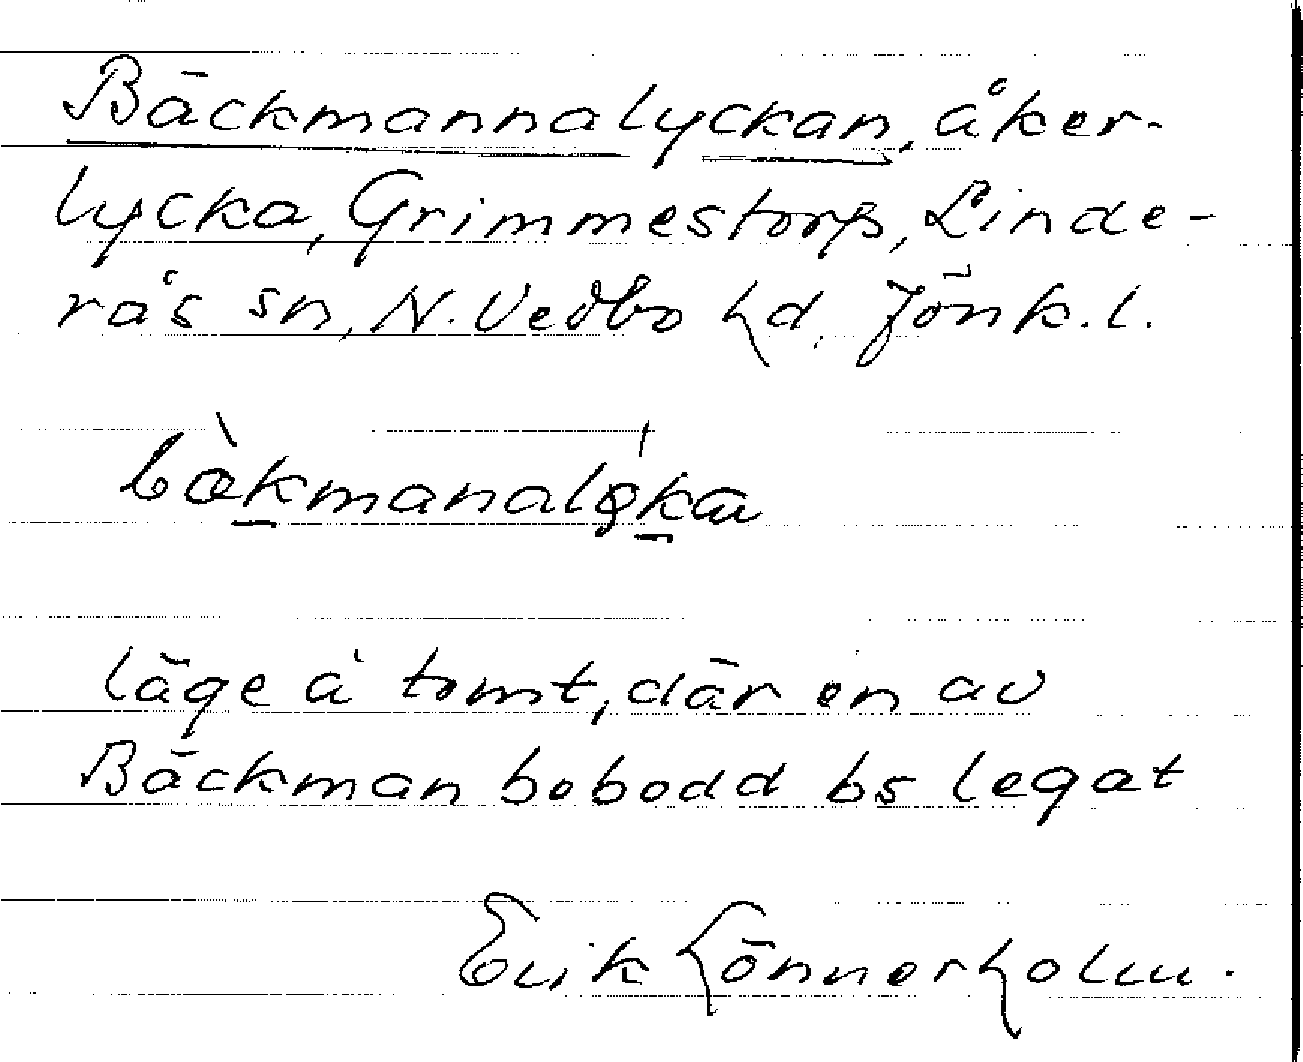 Bäckmannalyckan, åker-
lycka, Grimmestorp, Linde-
rås sn, N. Vedbo hd. Jönk. l.
läge å tomt, där en av
Bäckman bebodd bs legat
Erik Lönnerholm.